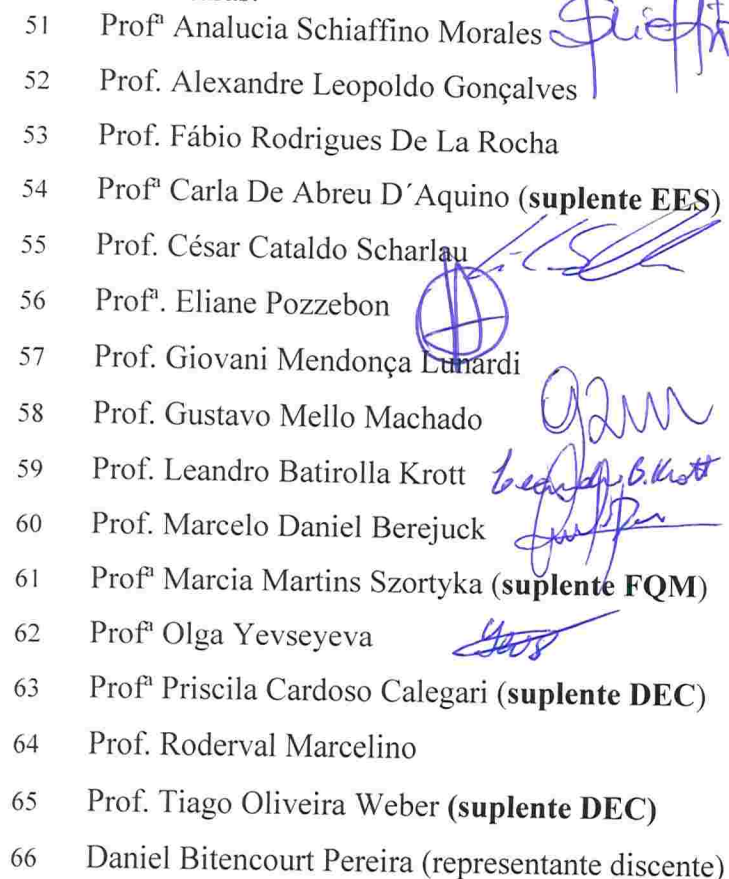 51 Profª Analucia Schiaffino Morales
52 Prof. Alexandre Leopoldo Gonçalves
53 Prof. Fábio Rodrigues De La Rocha
54 Profª Carla De Abreu D´Aquino (suplente EES)
55 Prof. César Cataldo Scharlau
56 Profª. Eliane Pozzebon
57 Prof. Giovani Mendonça Lunardi
58 Prof. Gustavo Mello Machado
59 Prof. Leandro Batirolla Krott Leandro B. Krott
60 Prof. Marcelo Daniel Berejuck
61 Profª Marcia Martins Szortyka (suplente FQM)
62 Profª Olga Yevseyeva
63 Profª Priscila Cardoso Calegari (suplente DEC)
64 Prof. Roderval Marcelino
65 Prof. Tiago Oliveira Weber (suplente DEC)
66 Daniel Bitencourt Pereira (representante discente)